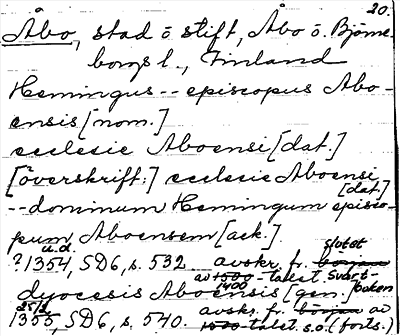 20.
Åbo, stad o stift, Åbo o. Björne-
borgs l., Finland
Hemingus -- episcopus Abo-
ensis [nom.]
ecclesie Aboensi [dat.]
[överskrift:] ecclesie Aboensi
[dat.]
-- dominum Hemingum episco-
pum Aboensem [ack.]
u.d. slutet
? 1354, SD6, s. 532 avskr. fr. början
av 1500-talet. Svart-
1400 boken
dyocesis Aboensis [gen.]
25/2
1355, SD6, s. 540. avskr. fr. början av
1500-talet. s.o. (forts.)